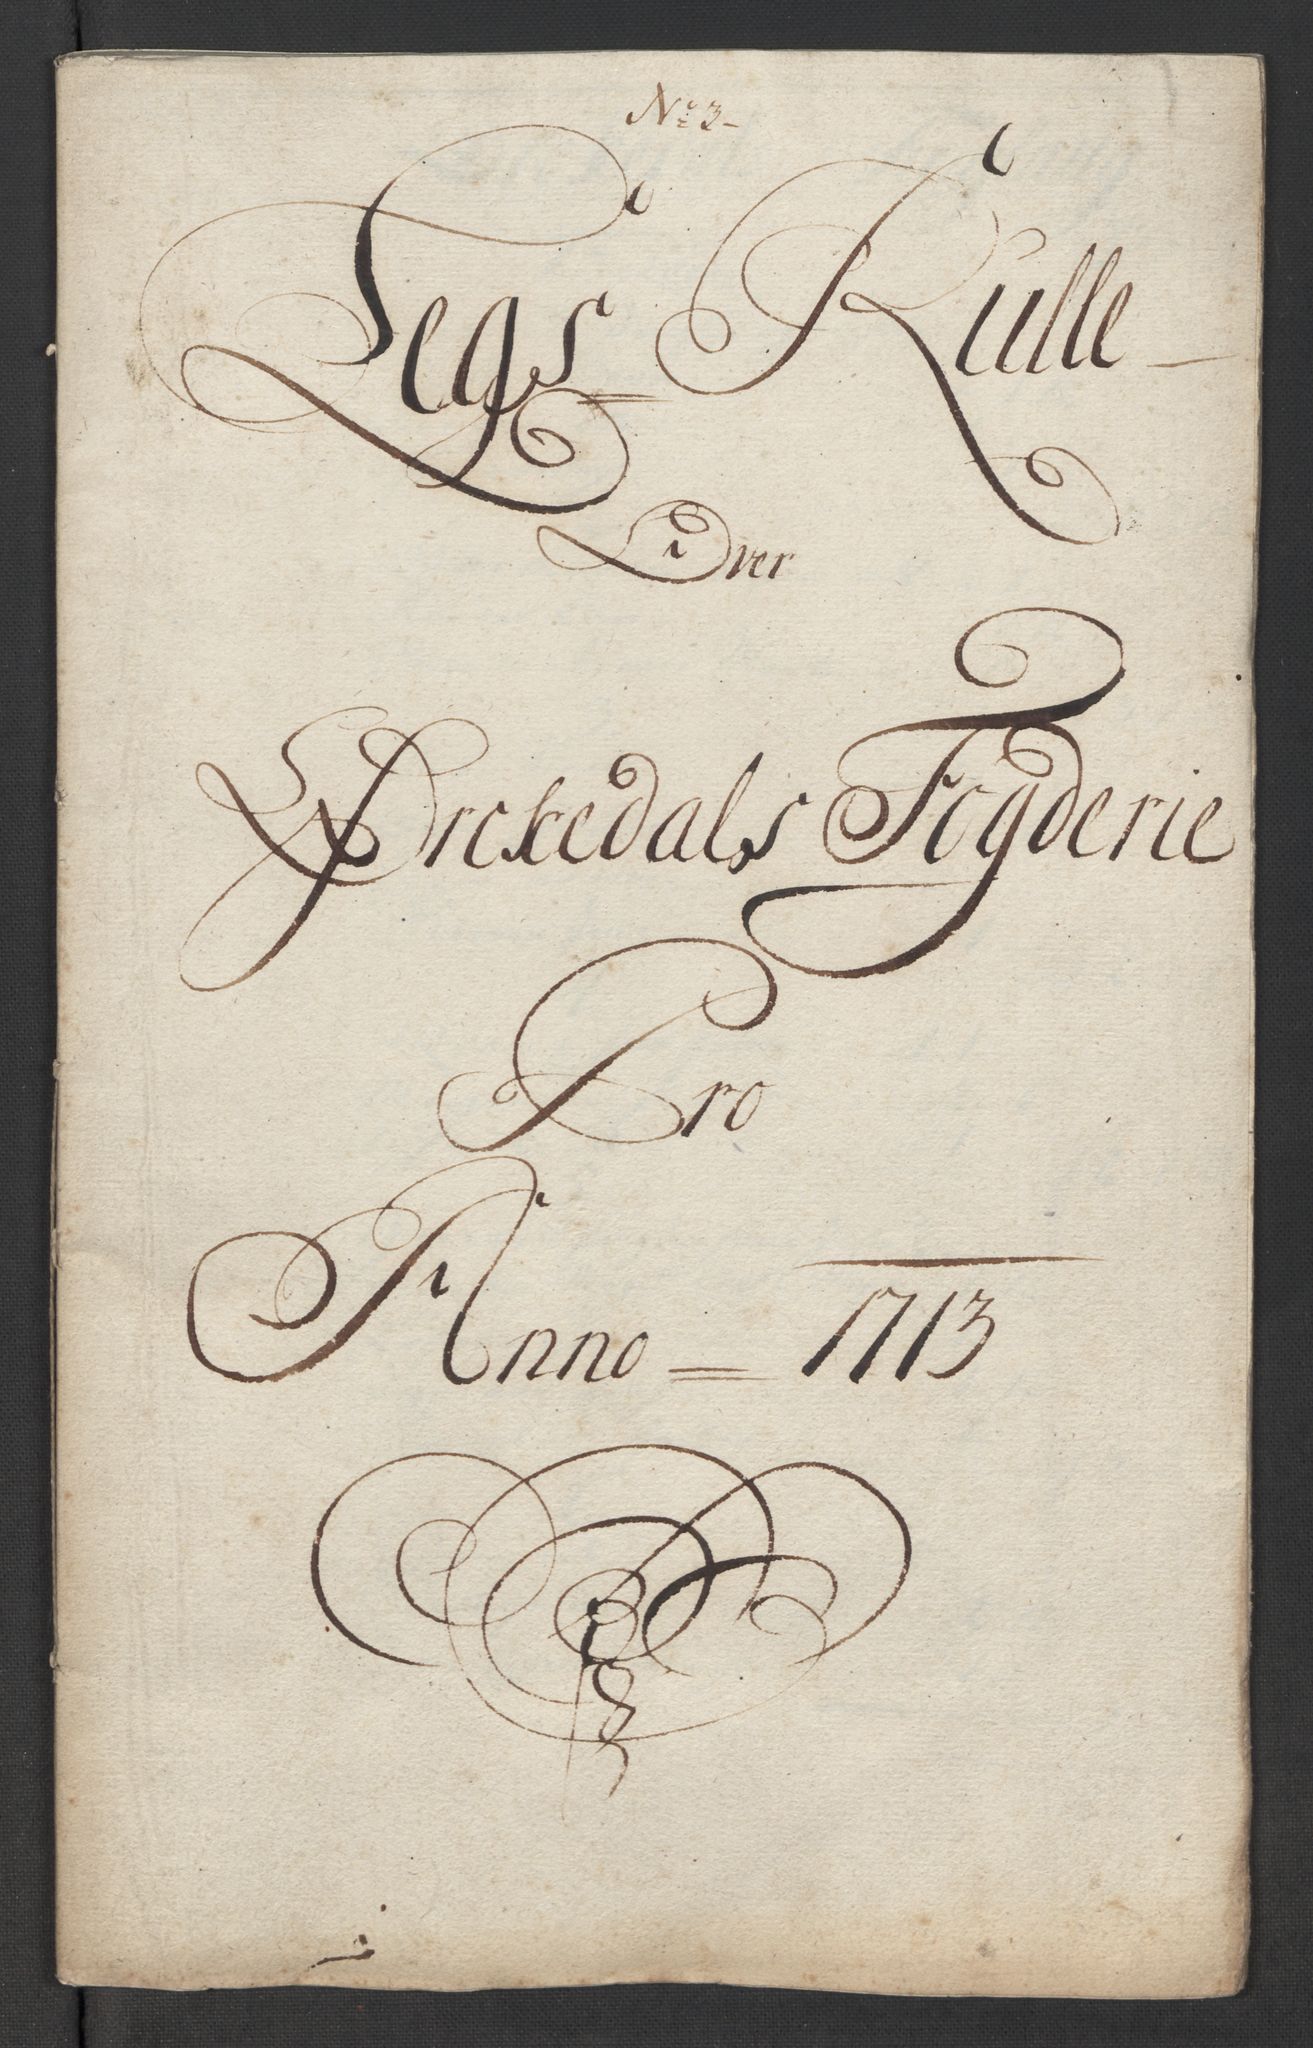 No 3-
Legs = Rulle -
Over
Ørckedals Fogderie
Pro
Anno = 1713